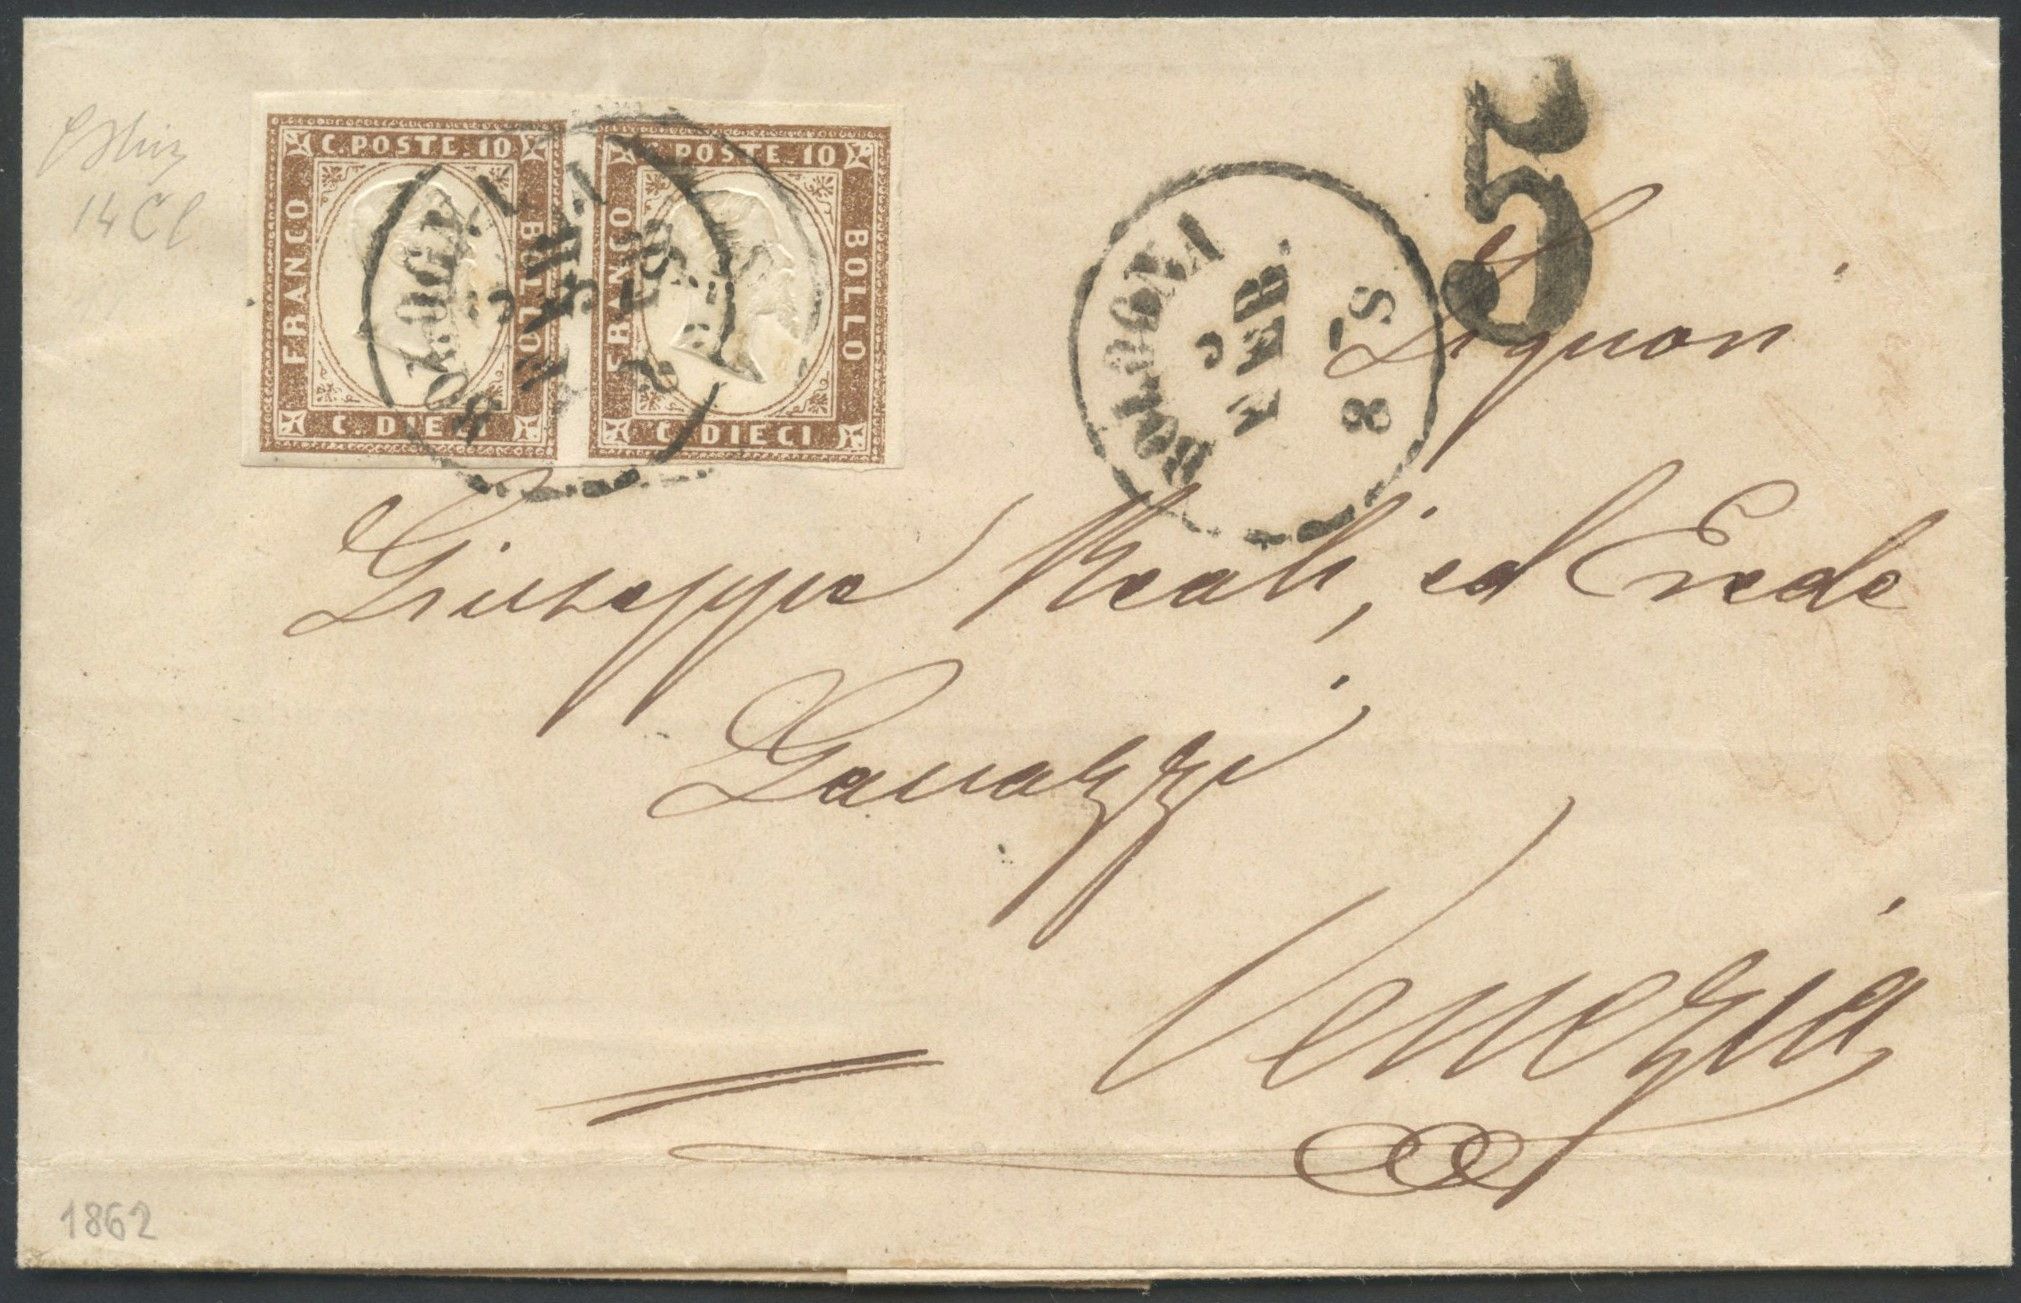 C. POSTE. 10
FRANCO
BOLLO
C. DIECI
C. POSTE. 10
FRANCO
BOLLO
C. DIECI
BOLOGNA
3
FEB.
8 S
5
14 Cl
Signori
Giuseppe Reali, ed Erede
Gavazzi
Venezia
1862